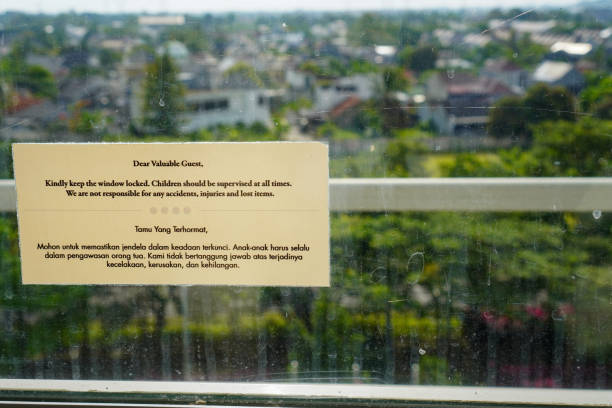 Dear Valuable Guest,
Kindly keep the window locked. Children should be supervised at all times.
We are not responsible for any accidents, injuries and lost items.
Tamu Yang Terhormat,
Mohon untuk memastikan jendela dalam keadaan terkunci. Anak-anak harus selalu
dalam pengawasan orang tua. Kami tidak bertanggung jawab atas terjadinya
kecelakaan, kerusakan, dan kehilangan.